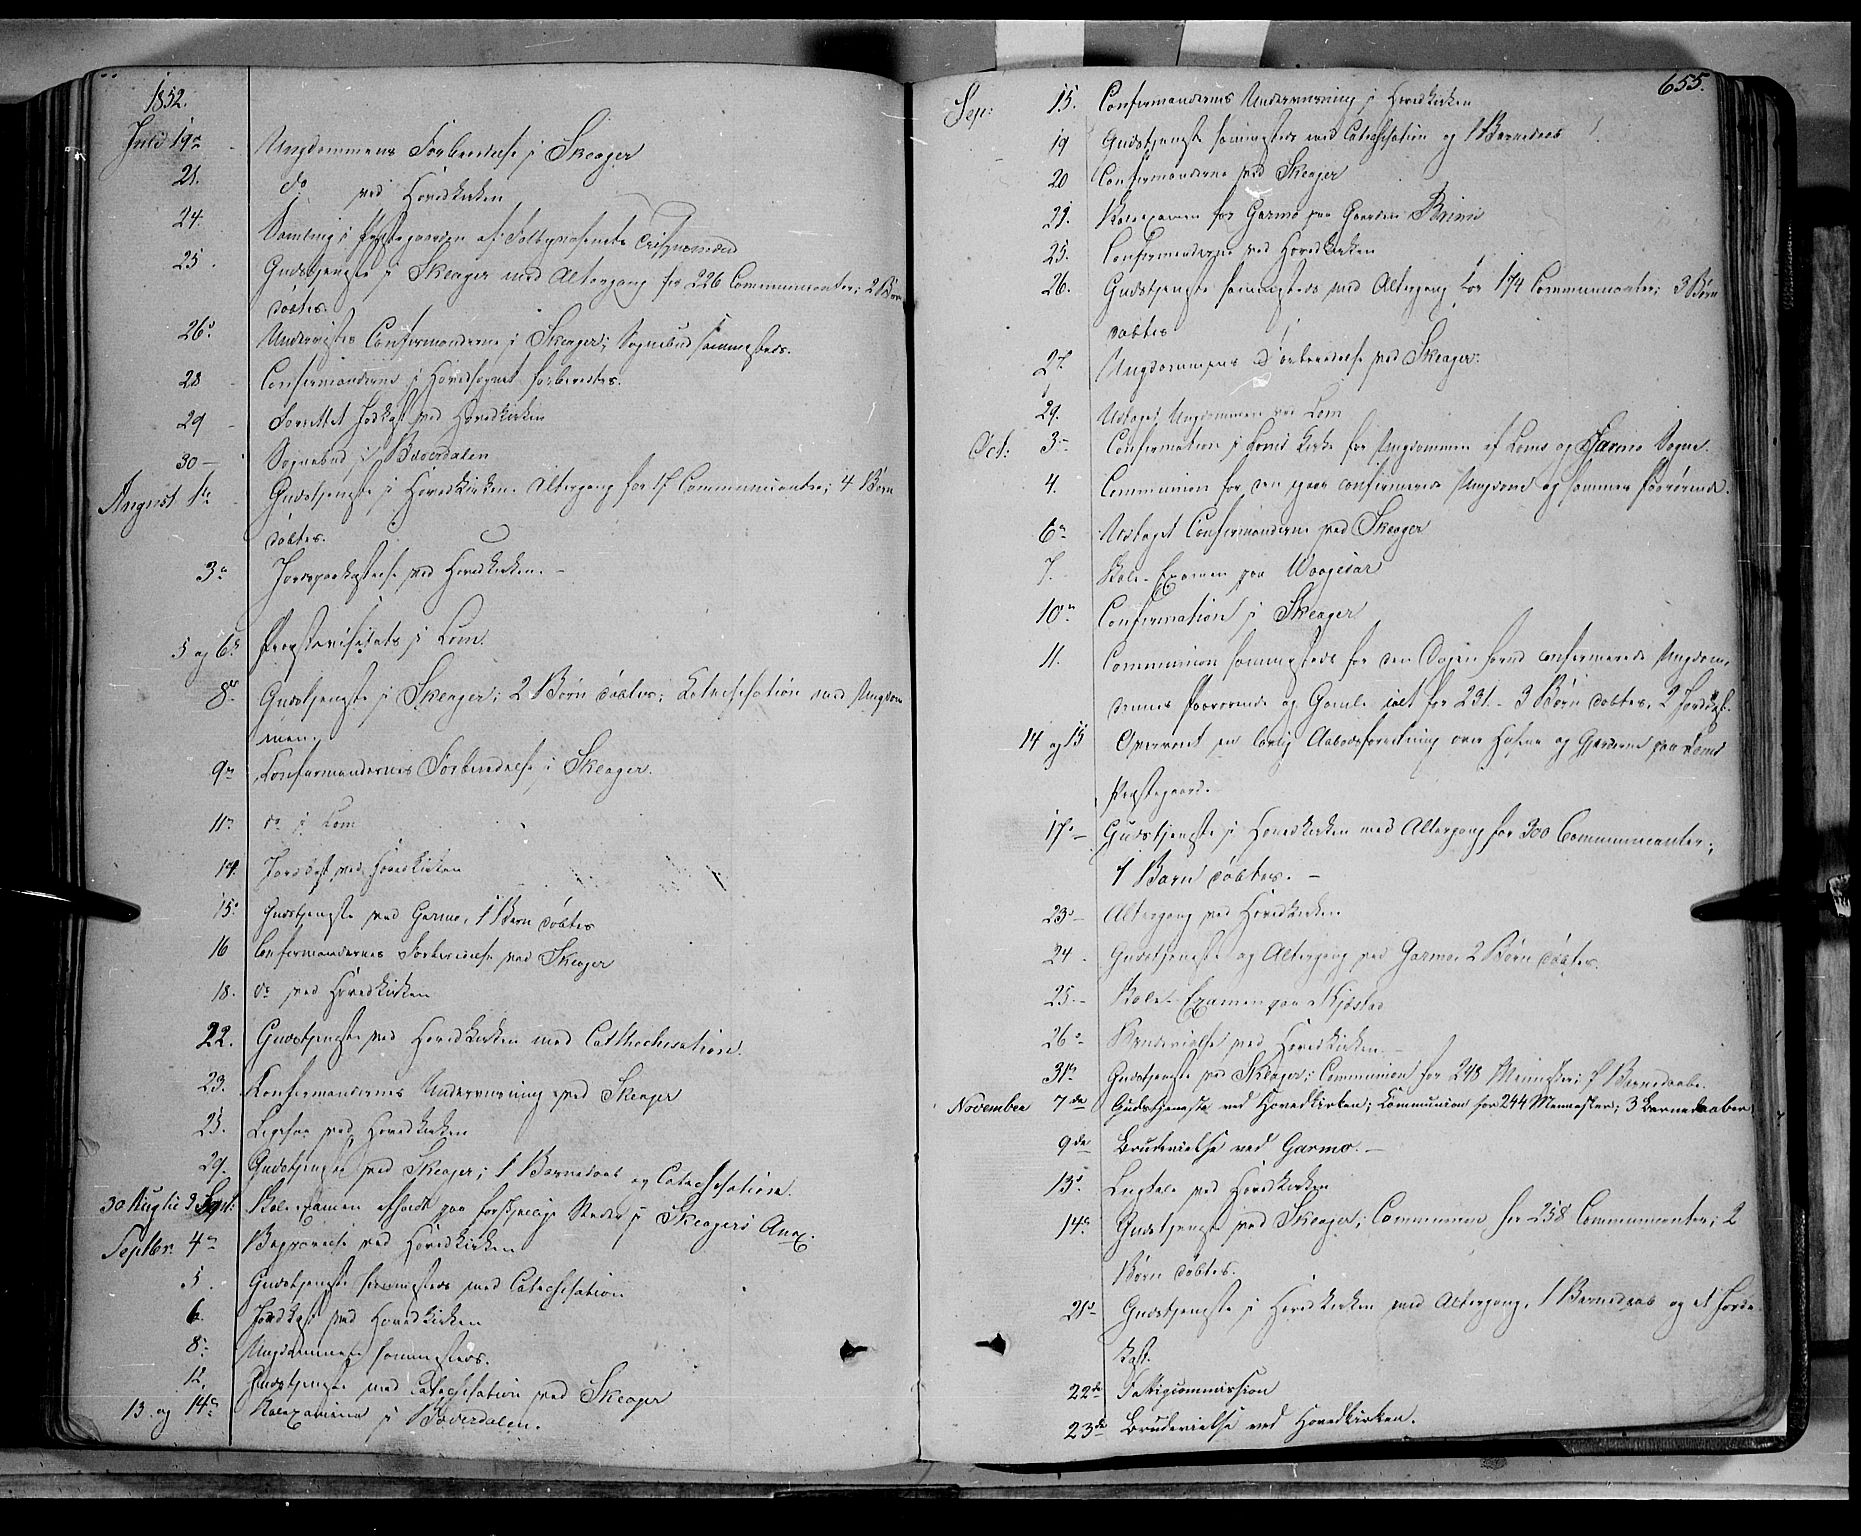 1852.
Juli 19de Ungdommens Forberedelse i Skeager
21. do ved Hovedkirken
24. Samling i Præstegaarden af
25. Gudstjeneste i Skeager med Altergang for 226 Communicanter; 2 Børn
døbtes.
26de Undervistes Confirmanderne i Skeager; Sognebud sammesteds.
28 Confirmanderne i Hovedsognet forberedtes.
29 Forrettet Jordkast ved Hovedkirken
30 Sognebud i Bæverdalen
August 1ste Gudstjeneste i Hovedkirken. Altergang for 17 Communicanter; 4 Børn
døbtes.
3de Jordspaakastelse ved Hovedkirken.
5 og 6te Provstevisitats i Lom.
8de Gudstjeneste i Skeager; 2 Børn døbtes; Katechisation med Ungdom
men.
9de Konfirmandernes Forberedelse i Skeager.
11te do i Lom
14. Jordkast ved Hovedkirken
15de Gudstjeneste ved Garmo, 1 Barn døbtes
16 Confirmandernes Forberedelse ved Skeager
18. do ved Hovedkirken
22. Gudstjeneste ved Hovedkirken med Cathechisation.
23. Konfirmandernes Undervisning ved Skeager
25. Ligesaa ved Hovedkirken
29. Gudstjeneste ved Skeager; 1 Barnedaab og Catechisation.
30 Aug til 3 Sept: Skoleexamen afholdt paa forskjellige Steder i Skeagers Anex.
Septbr. 4de Begravelse ved Hovedkirken
5. Gudstjeneste sammesteds med Catechisation
6. Jordkast ved Hovedkirken
8de Ungdommen sammesteds.
12. Gudstjeneste med Catechisation ved Skeager
13. og 14de Skoleexamina i Bæverdalen.
655.
Sep: 15. Confirmandernes Undervisning i Hovedkirken
19 Gudstjeneste sammesteds med Catechisation og 1 Barnedaab
20 Confirmanderne ved Skeager
21. Skoleexamen for Garmo paa Gaarden Brimi
25. Confirmanderne ved Hovedkirken
26. Gudstjeneste sammesteds med Altergang for 174 Communicanter; 3 Børn
døbtes
27. Ungdommens Forberedelse ved Skeager.
29. Udtaget Ungdommen ved Lom
Oct: 3die Confirmation i Loms Kirke for Ungdommen af Loms og Garmo Sogne.
4. Communion for den igaar confirmerede Ungdom og sammes Paarørende.
6te Udtaget Confirmanderne ved Skeager
7. Skole-Examen paa
10de Confirmation i Skeager
11. Communion sammesteds for den Dagen forud confirmerede Ungdom,
dennes Paarørende og Gamle ialt for 231. 3 Børn døbtes, 2 Jordkast
14 og 15 Overværet en lovlig Aabodsforretning over Husene og Gjærderne paa Loms
Præstegaard.
17de Gudstjeneste i Hovedkirken med Altergang for 300 Communicanter;
1 Barn døbtes.
23de Altergang ved Hovedkirken
24. Gudstjeneste og Altergang ved Garmo, 2 Børn døbtes.
25. Skole-Examen paa Kjæstad
26de Brudevielse ved Hovedkirken.
31te Gudstjeneste ved Skeager; Communion for 248 Mennesker; 1 Barnedaab.
November 7de Gudstjeneste ved Hovedkirken; Kommunion for 244 Mennesker; 3 Barnedaaber
9de Brudevielse ved Garmo.
13de Ligtale ved Hovedkirken
14de Gudstjeneste ved Skeager; Communion for 258 Communicanter; 2
Børn døbtes.
21de Gudstjeneste i Hovedkirken med Altergang, 1 Barnedaab og et Jorde
kast.
22de Fattigcommission
23de Brudevielse ved Hovedkirken.